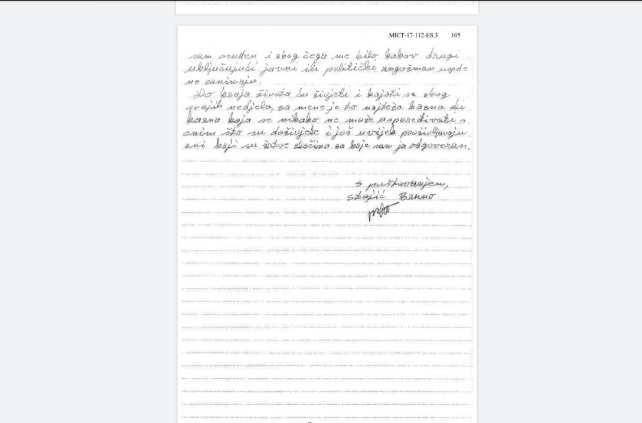 MICT-17-112-ES.3 105
sam osuđen i zbog čega me bilo kakav drugi
uključujući javni ili politički angažman uopće
ne zanimaju.
Do kraja života ću živjeti i kajati se zbog
svojih nedjela, za mene je to najteža kazna ali
kazna koja se nikako ne može uspoređivati s
onim što su doživjele i još uvijek proživljavaju
oni koji su žrtve zločina za koje sam ja odgovoran.
S poštovanjem,
Stojić Bruno